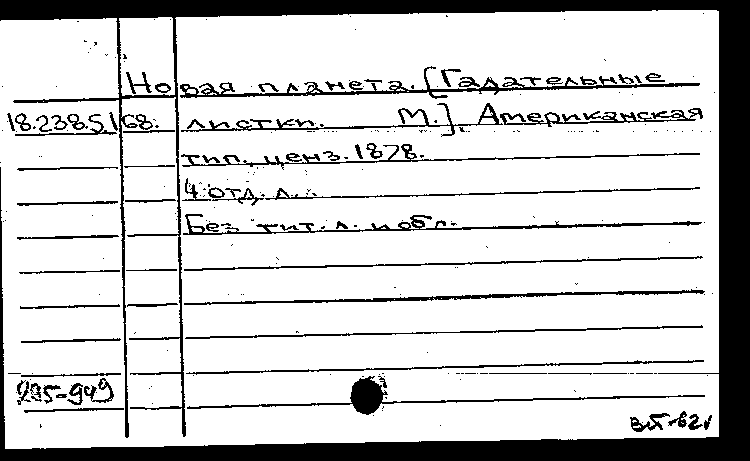 Новая планета. [Гадательные
18.238.5.168. листки. М.], Американская
тип., ценз. 1878.
4 отд. л.
Без тит. л. и обл.
295-949